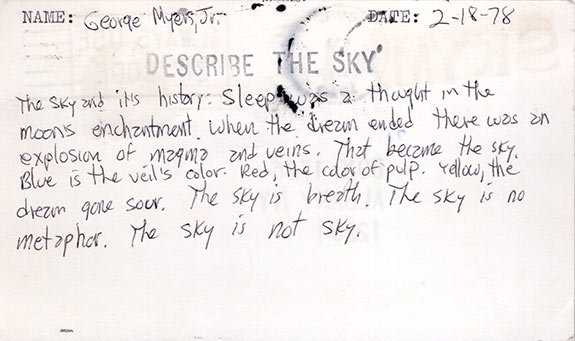 NAME: George Myers, Jr. DATE: 2-18-78
DESCRIBE THE SKY
The sky and its history: Sleep was a thought in the
moon's enchantment. When the dream ended there was an
explosion of magma and veins. That became the sky.
Blue is the veil's color. Red, the color of pulp. Yellow, the
dream gone sour. The sky is breath. The sky is no
metaphor. The sky is not sky.